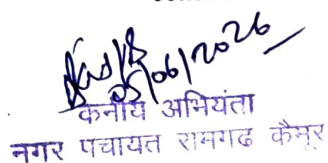 05/06/2026
कनीय अभियंता
नगर पंचायत रामगढ कैमूर